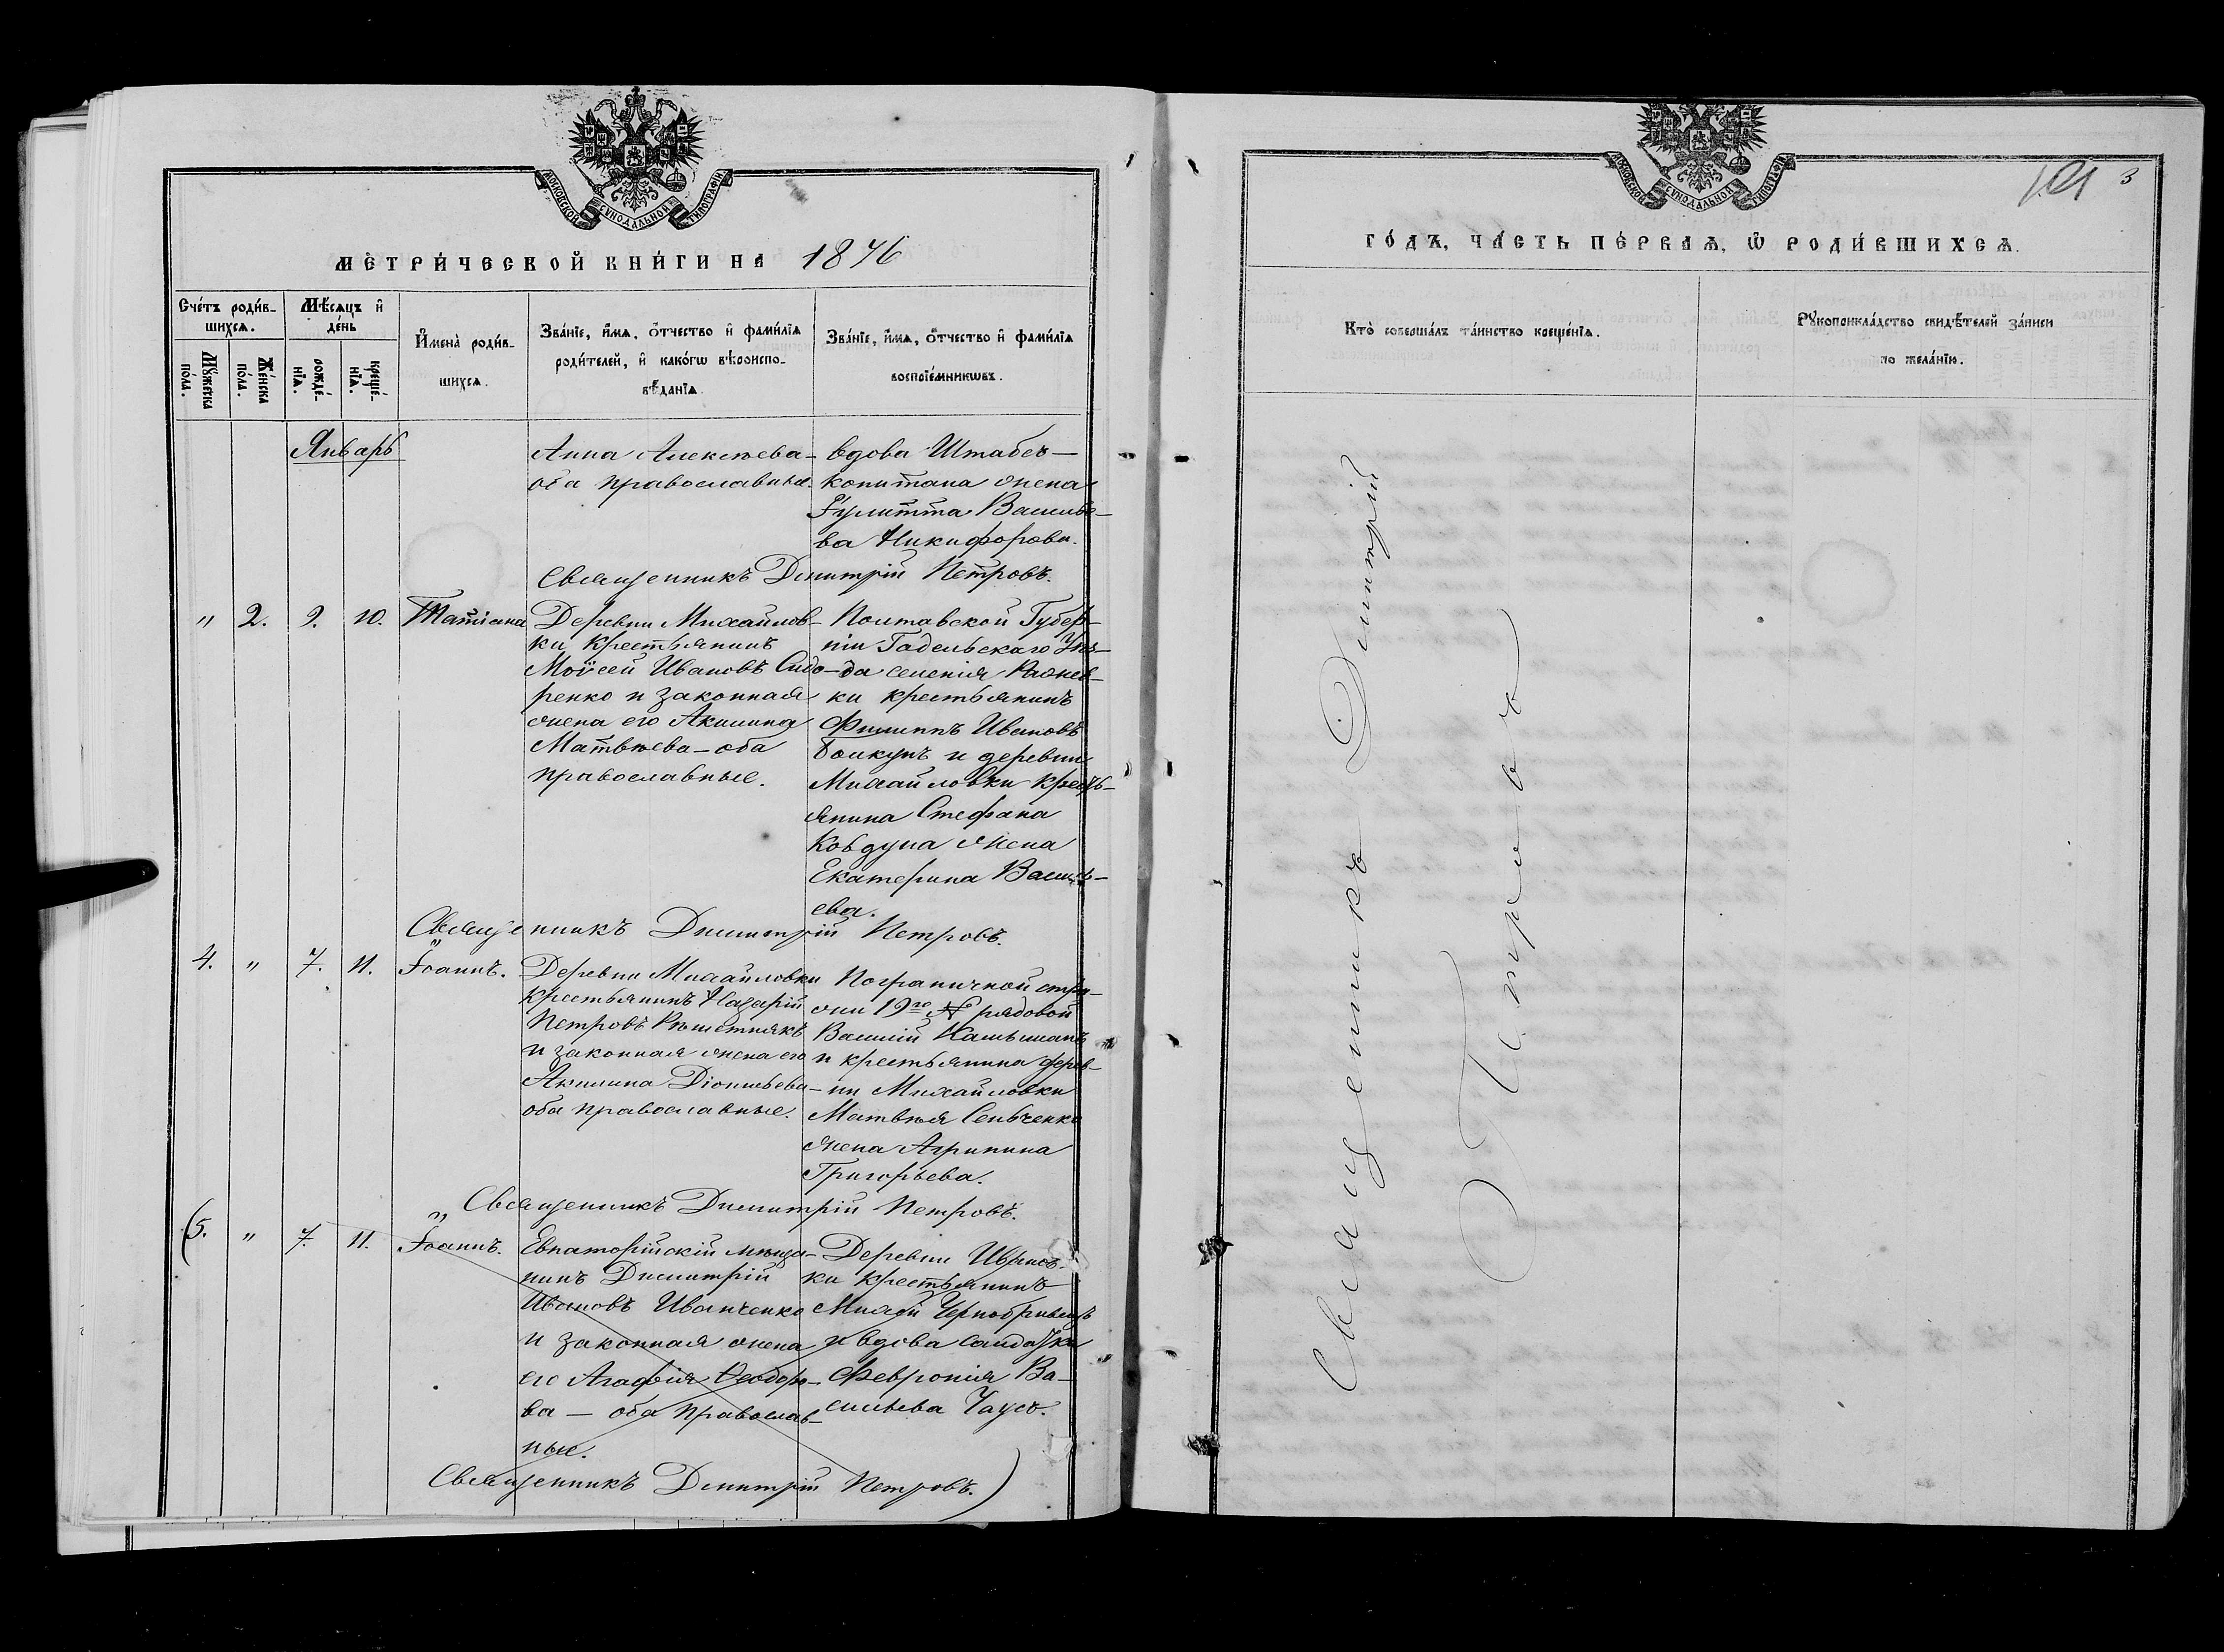 МОСКОВСКОЙ СУНОДАЛЬНОЙ ТИПОГРАФІИ
МЕТРИ́ЧЕСКОЙ КНИ́ГИ НА 1876
Сче́тъ роди́в-
шихсѧ.
Мѣ́сѧцъ и҆
де́нь
Мꙋ́жеска
по́ла.
Же́нска
по́ла.
рожде́-
нїѧ.
креще́-
нїѧ.
И҆мена̀ роди́в-
шихсѧ.
Зва́нїе, и҆́мѧ, ѻ҆́тчество и҆ фами́лїѧ
роди́телей, и҆ како́гѡ вѣроиспо-
вѣ́данїѧ.
Зва́нїе, и҆́мѧ, ѻ҆́тчество и҆ фами́лїѧ
воспрїе́мникѡвъ.
Январь
Анна Алексѣева-
оба православные.
вдова Штабсъ-
капитана жена
Іулитта Василье-
ва Никифорова.
Священникъ Димитрій Петровъ.
" 2. 9. 10. Татіана
Деревни Михайлов-
ки крестьянинъ
Моѵсей Ивановъ Сидо-
ренко и законная
жена его Акилина
Матвѣева - оба
православные.
Полтавской Губер-
ніи Гадельскаго Уѣз-
да селенія
ки крестьянинъ
Филиппъ Ивановъ
и деревни
Михайловки кресть-
янина Стефана
Ковдуна жена
Екатерина Василь-
ева.
Священникъ Димитрій Петровъ.
4. " 7. 11. Іоаннъ.
Деревни Михайловки
крестьянинъ Назарій
Петровъ Рѣшетнякъ
и законная жена его
Акилина Діонисьева-
оба православные.
Пограничной стра-
жи 19го № рядовой
Василій
и крестьянина дерев-
ни Михайловки
Матвѣя Сенченко
жена Агрипина
Григорьева.
Священникъ Димитрій Петровъ.
(5. " 7. 11. Іоаннъ.
Евпаторійскій мѣща-
нинъ Димитрій
Ивановъ Иванченко
и законная жена
его Агафія Ѳеодоро-
ва - оба православ-
ные.
Деревни Ивановъ-
ки крестьянинъ
Михей Чернобривецъ
и вдова солдатка
Февронія Ва-
сильева Чаусъ.
Священникъ Димитрій Петровъ.)
МОСКОВСКОЙ СУНОДАЛЬНОЙ ТИПОГРАФІИ
3
ГО́ДЪ, ЧА́СТЬ ПЕ́РВАѦ, Ѡ҆ РОДИ́ВШИХСѦ.
Кто̀ соверша́лъ та́инство креще́нїѧ.
Рꙋкоприкла́дство свидѣ́телей за́писи
по жела́нїю.
Священникъ Димитрій
Петровъ